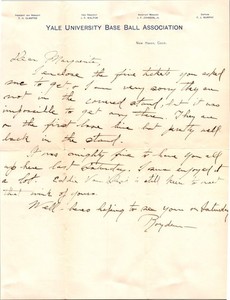 YALE UNIVERSITY BASE BALL ASSOCIATION
NEW HAVEN, CONN.
Dear Margaret,
I enclose the five tickets you asked
me to get. I am very sorry they are
not in the covered stand, but it was
impossible to get any there. They are
on the first base line but pretty well
back in the stand.
It was mighty fine to have you all
up here last Saturday. I sure enjoyed it
a lot. is still here to meet
that of yours.
Well - here's hoping to see you on Saturday
Boyden